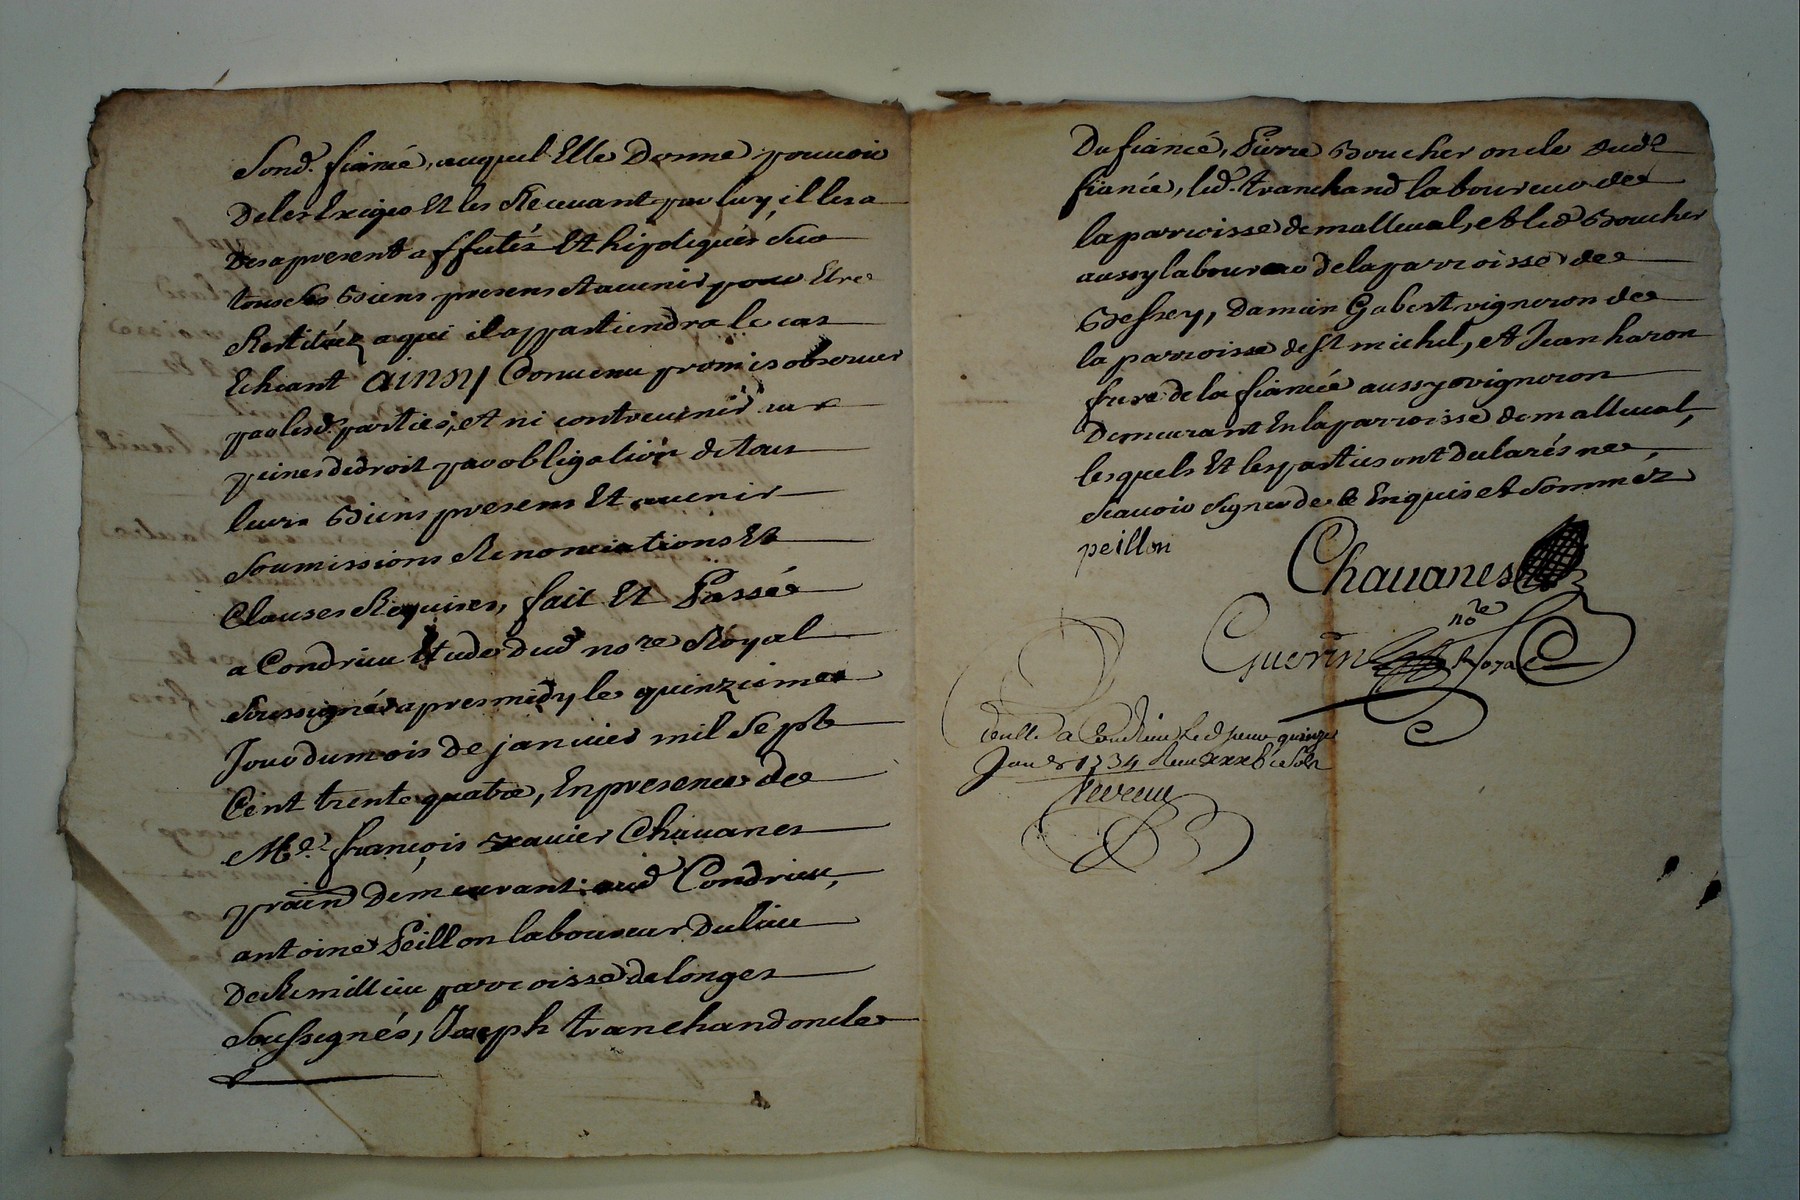 Sond. fiancé, auquel Elle Donne pouvoir
Deles Exiger Et les Recevant par luy, il les a
Des apresent affutés Et hipotequés sur
tous ses Biens presens et avenir pour Etre
Restitués a qui il appartiendra le cas
Echeant ainsy Convenu promis observer
par lesd. parties, et ni contrevenir aux
peines de droit par obligation de tous
leurs Biens presens Et avenir
soumissions Renonciations Et
Clauses Requises, fait Et Passé
a Condrieu Etude dud nore Royal
soussigné apres midy le quinzieme
Jour du mois de janvier mil Sept
Cent trente quatre, En presence de
Me. françois xavier Chavanes
pratn Demeurant aud Condrieu,
antoine Peillon laboureur Du lieu
De Remillieu parroisse de longes
Soussignés, Joseph tranchand oncle
Du fiancé, Pierre Boucher oncle dud.
fiancée, led. tranchand laboureur de
la parroisse de malleval, et led Boucher
aussy laboureur de la parroisse de
Bessey, Damien Gabert vigneron de
la parroisse de st michel, et Jean haron
frere de la fiancée aussy vigneron
Demeurant En la parroisse de malleval,
lesquels Et les parties ont Declarés ne
scavoir signer de ce Enquis et sommés
peillon
Chavanes
Guerin nore Royal
Controllé a Condrieu Led jour quinze
Janer 1734 Receu